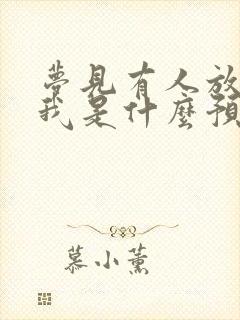 夢見有人放
我是什麼預
慕小薰